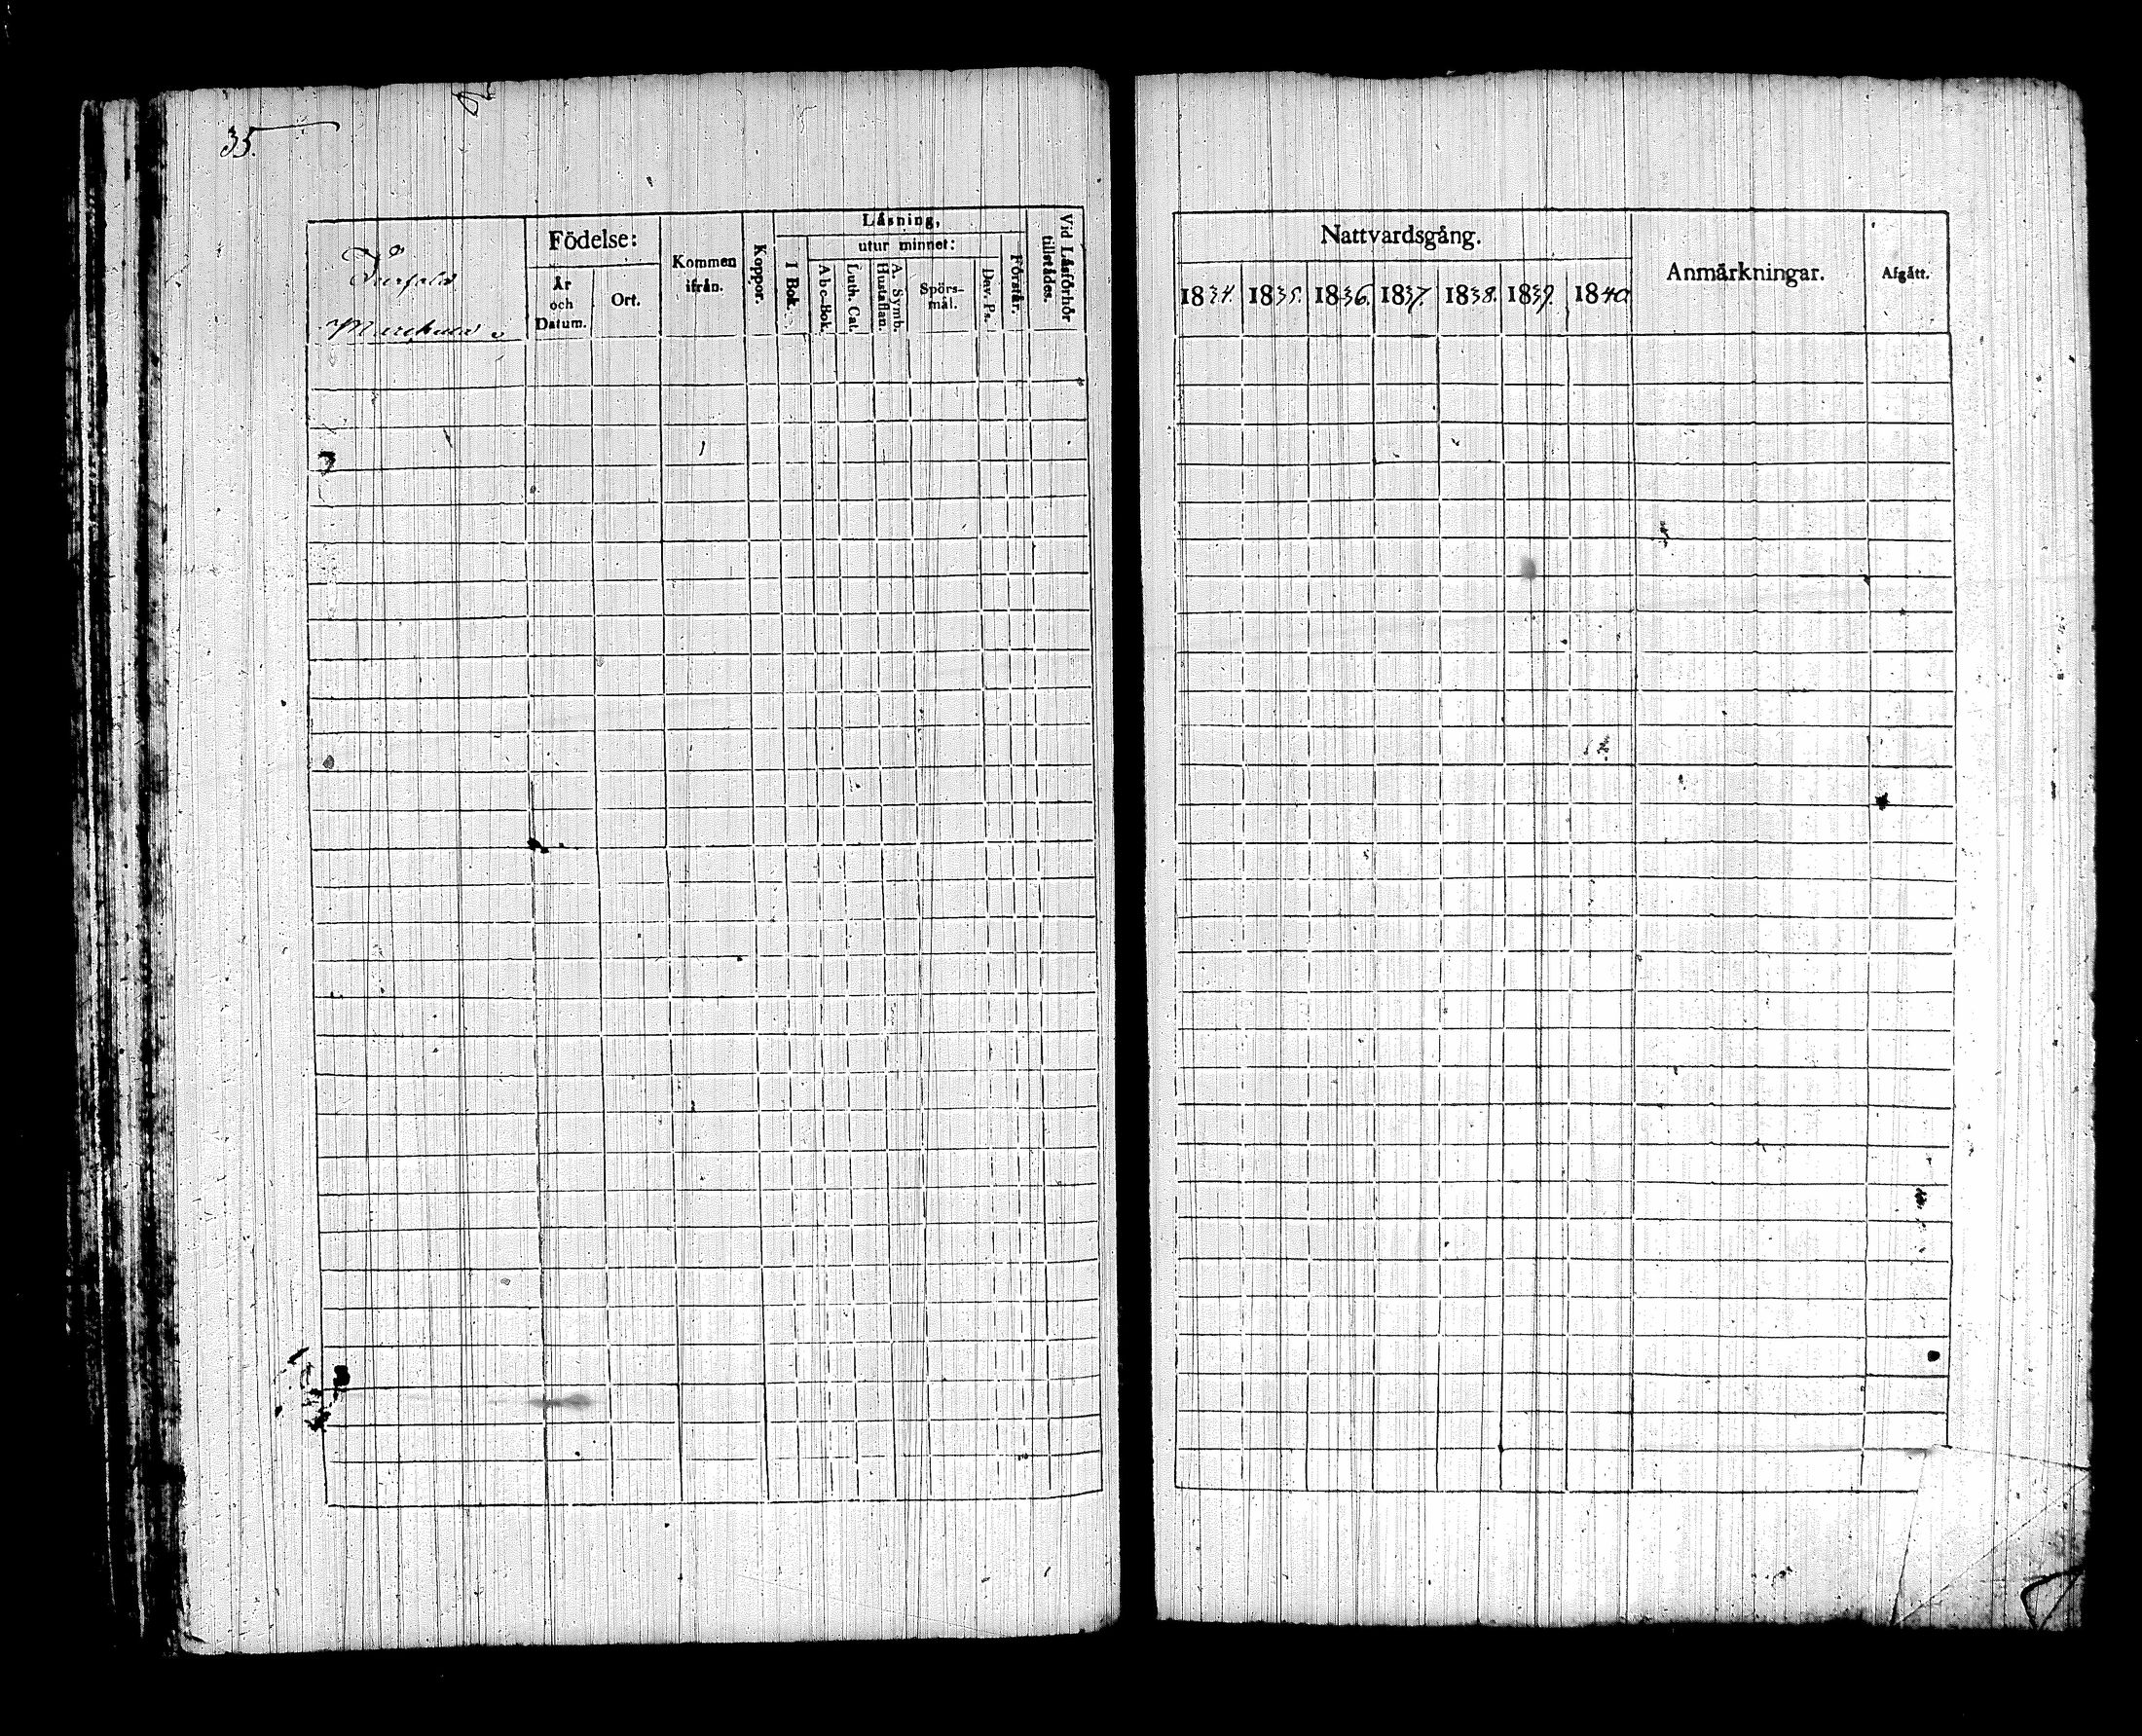 35.
Födelse:
År
och
Datum.
Ort.
Kommen
ifrån.
Koppor.
Läsning,
utur minnet:
I Bok.
Abc-Bok.
Luth. Cat.
A. Symb.
Hustaflan.
Spörs-
mål.
Dav. Ps.
Förstår.
Vid Läsförhör
tillstädes.
Nattvardsgång.
1834.
1835.
1836.
1837.
1838.
1839.
1840
Anmärkningar.
Afgått.